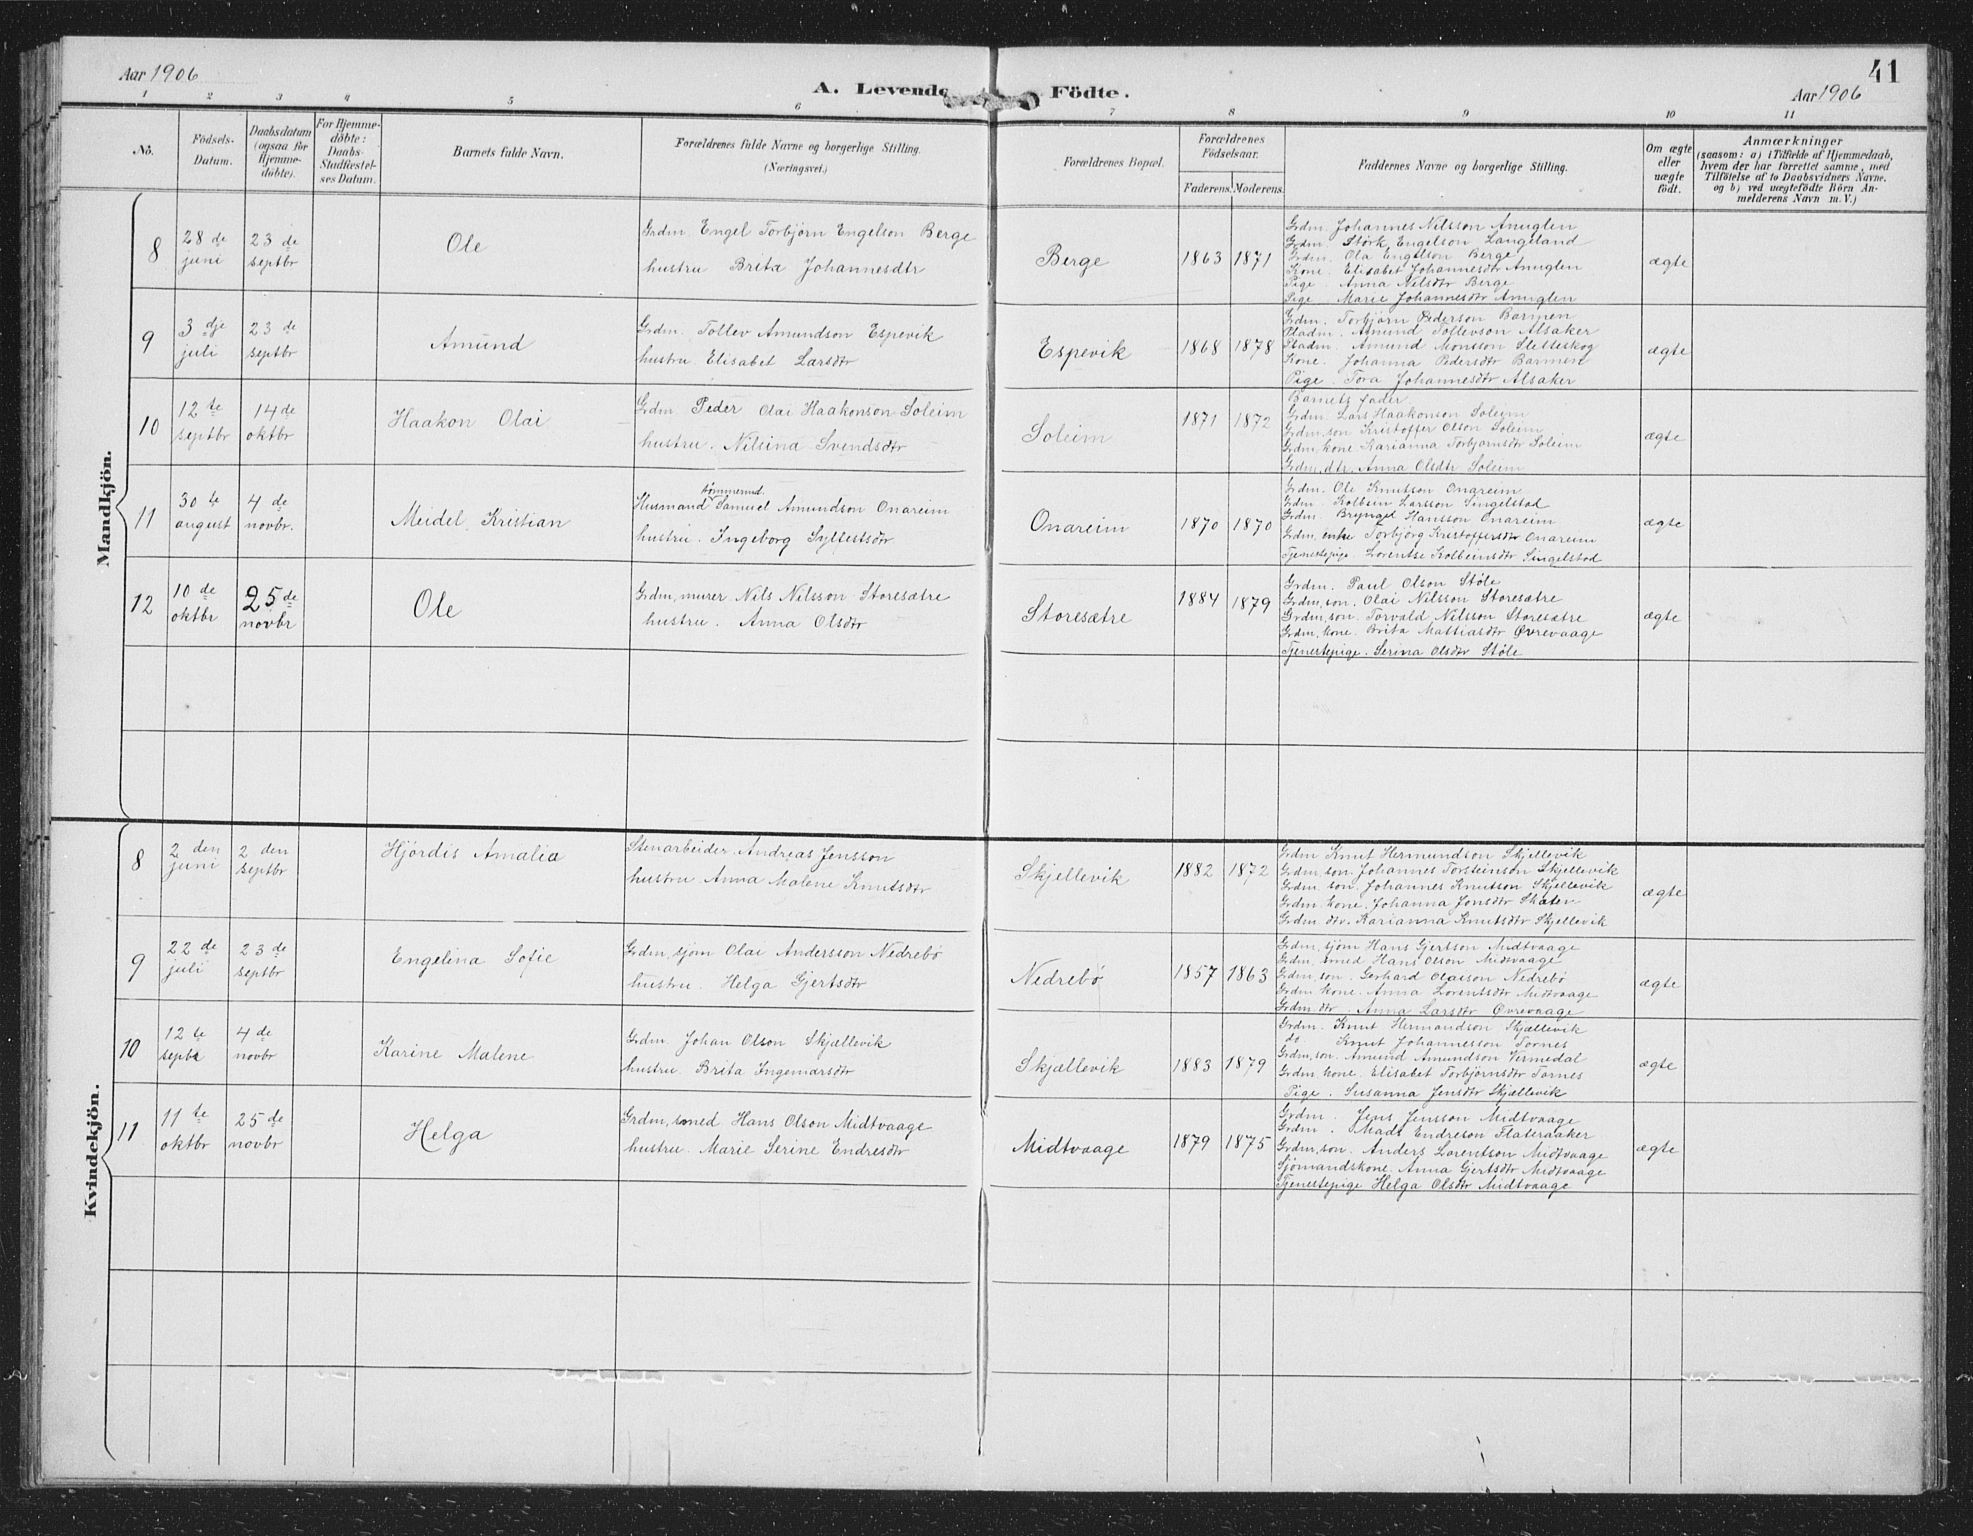 Aar 1906
A. Levende Födte.
41
Aar 1906
1 2 3 4 5 6 7 8 9 10 11
No.
Födsels-Datum.
Daabsdatum (ogsaa for Hjemme-döbte).
For Hjemme-döbte: Daabs-Stadfæstel-ses Datum.
Barnets fulde Navn.
Forældrenes fulde Navne og borgerlige Stilling.
(Næringsvei.)
Forældrenes Bopæl.
Forældrenes Födselsaar.
Faderens. Moderens.
Faddernes Navne og borgerlige Stilling.
Om ægte eller uægte födt.
Anmærkninger
(saasom: a) i Tilfælde af Hjemmedaab,
hvem der har forrettet samme, med
Tilföielse af to Daabsvidners Navne,
og b) ved uægtefödte Börn An-
melderens Navn m. V.)
Mandkjön.
8
28 de juni
23 de septbr
Ole
Grdm. Engel Torbjörn Engelson Berge
hustru Brita Johannesdtr
Berge
1863 1871
Grdm. Johannes Nilsson Anuglen
Grdm. Störk Engelson Langeland
Grdm. Ola Engelson Berge
Kone. Elisabet Johannesdtr Anuglen
Pige. Anna Nilsdtr Berge
Pige. Marie Johannesdtr Anuglen
ægte
9
3 dje juli
23 de septbr
Amund
Grdm. Tollev Amundson Espevik
hustru Elisabet Larsdtr
Espevik
1868 1878
Grdm. Torbjörn Pederson Barmen
Pladm. Amund Tollevson Alsaker
Pladm. Amund Monsson Sletteskog
Kone. Johanna Pedersdtr Barmen
Pige. Tora Johannesdtr Alsaker
ægte
10
12 te septbr
14 de oktbr
Haakon Olai
Grdm. Peder Olai Haakonson Soleim
hustru. Nilsina Svendsdtr
Soleim
1871 1872
Barnets fader.
Grdm. Lars Haakonson Soleim
Grdm, son Kristoffer Olson Soleim
Grdm, kone Karianna Torbjörnsdtr Soleim
Grdm, dtr. Anna Olsdtr Soleim
ægte
11
30 te august
4 de novbr.
Meidel Kristian
tömmermd.
Husmand Samuel Amundson Onareim
hustru. Ingeborg Syllestsdtr
Onareim
1870 1870
Grdm. Ole Knutson Onareim
Grdm. Kolbein Larsson Singelstad
Grdm. Brynjel Hansson Onareim
Grdm, enke Torbjörg Kristoffersdtr Onareim
Tjenestepige. Lorentse Kolbeinsdtr Singelstad
ægte
12
10 de oktbr
25 de novbr
Ole
Grdm, murer. Nils Nilsson Storesætre
hustru. Anna Olsdtr
Storesætre
1884 1879
Grdm. Paul Olson Stöle
Grdm, son. Olai Nilsson Storesætre
Grdm, son. Torvald Nilsson Storesætre
Grdm, kone. Brita Mattiasdtr Övrevaage
Tjenestepige. Serina Olsdtr Stöle
ægte
Kvindekjön.
8
2 den juni
2 den septbr
Hjördis Amalia
Stenarbeider Andreas Jensson
hustru Anna Malene Knutsdtr
Skjellevik
1882 1872
Grdm Knut Hermundson Skjellevik
Grdm, son. Johannes Torsteinson Skjellevik
Grdm. son. Johannes Knutson Skjellevik
Grdm. kone. Johanna Jonsdtr Skaten
Grdm. dtr. Karianna Knutsdtr Skjellevik
ægte
9
22 de juli
23 de septbr
Engelina Sofie
Grdm, sjöm Olai Andersson Nedrebö
hustru. Helga Gjertsdtr
Nedrebö
1857 1863
Grdm, sjöm Hans Gjertson Midtvaage
Grdm, smed Hans Olson Midtvaage
Grdm, son. Gerhard Olaison Nedrebö
Grdm kone. Anna Lorentsdtr Midtvaage
Grdm dtr. Anna Larsdtr Övrevaage
ægte
10
12 te septb
4 de novbr
Karine Malene
Grdm. Johan Olson Skjællevik
hustru. Brita Ingemarsdtr
Skjællevik
1883 1879
Grdm. Knut Hermandson Skjællevik
do Knut Johannesson Tornes
Grdm, son. Amund Amundson Vermedal
Grdm kone. Elisabet Torbjörnsdtr Tornes
Pige. Susanna Jensdtr Skjællevik
ægte
11
11 te oktbr
25 de novbr
Helga
Grdm, smed Hans Olson Midtvaage
hustru. Marie Serine Endresdtr
Midtvaage
1879 1875
Grdm. Jens Jensson Midtvaage
Grdm. Mads Endreson Flateraaker
Grdm, son. Anders Lorentson Midtvaage
Sjömandskone. Anna Gjertsdtr Midtvaage
Tjenestepige Helga Olsdtr Midtvaage
ægte